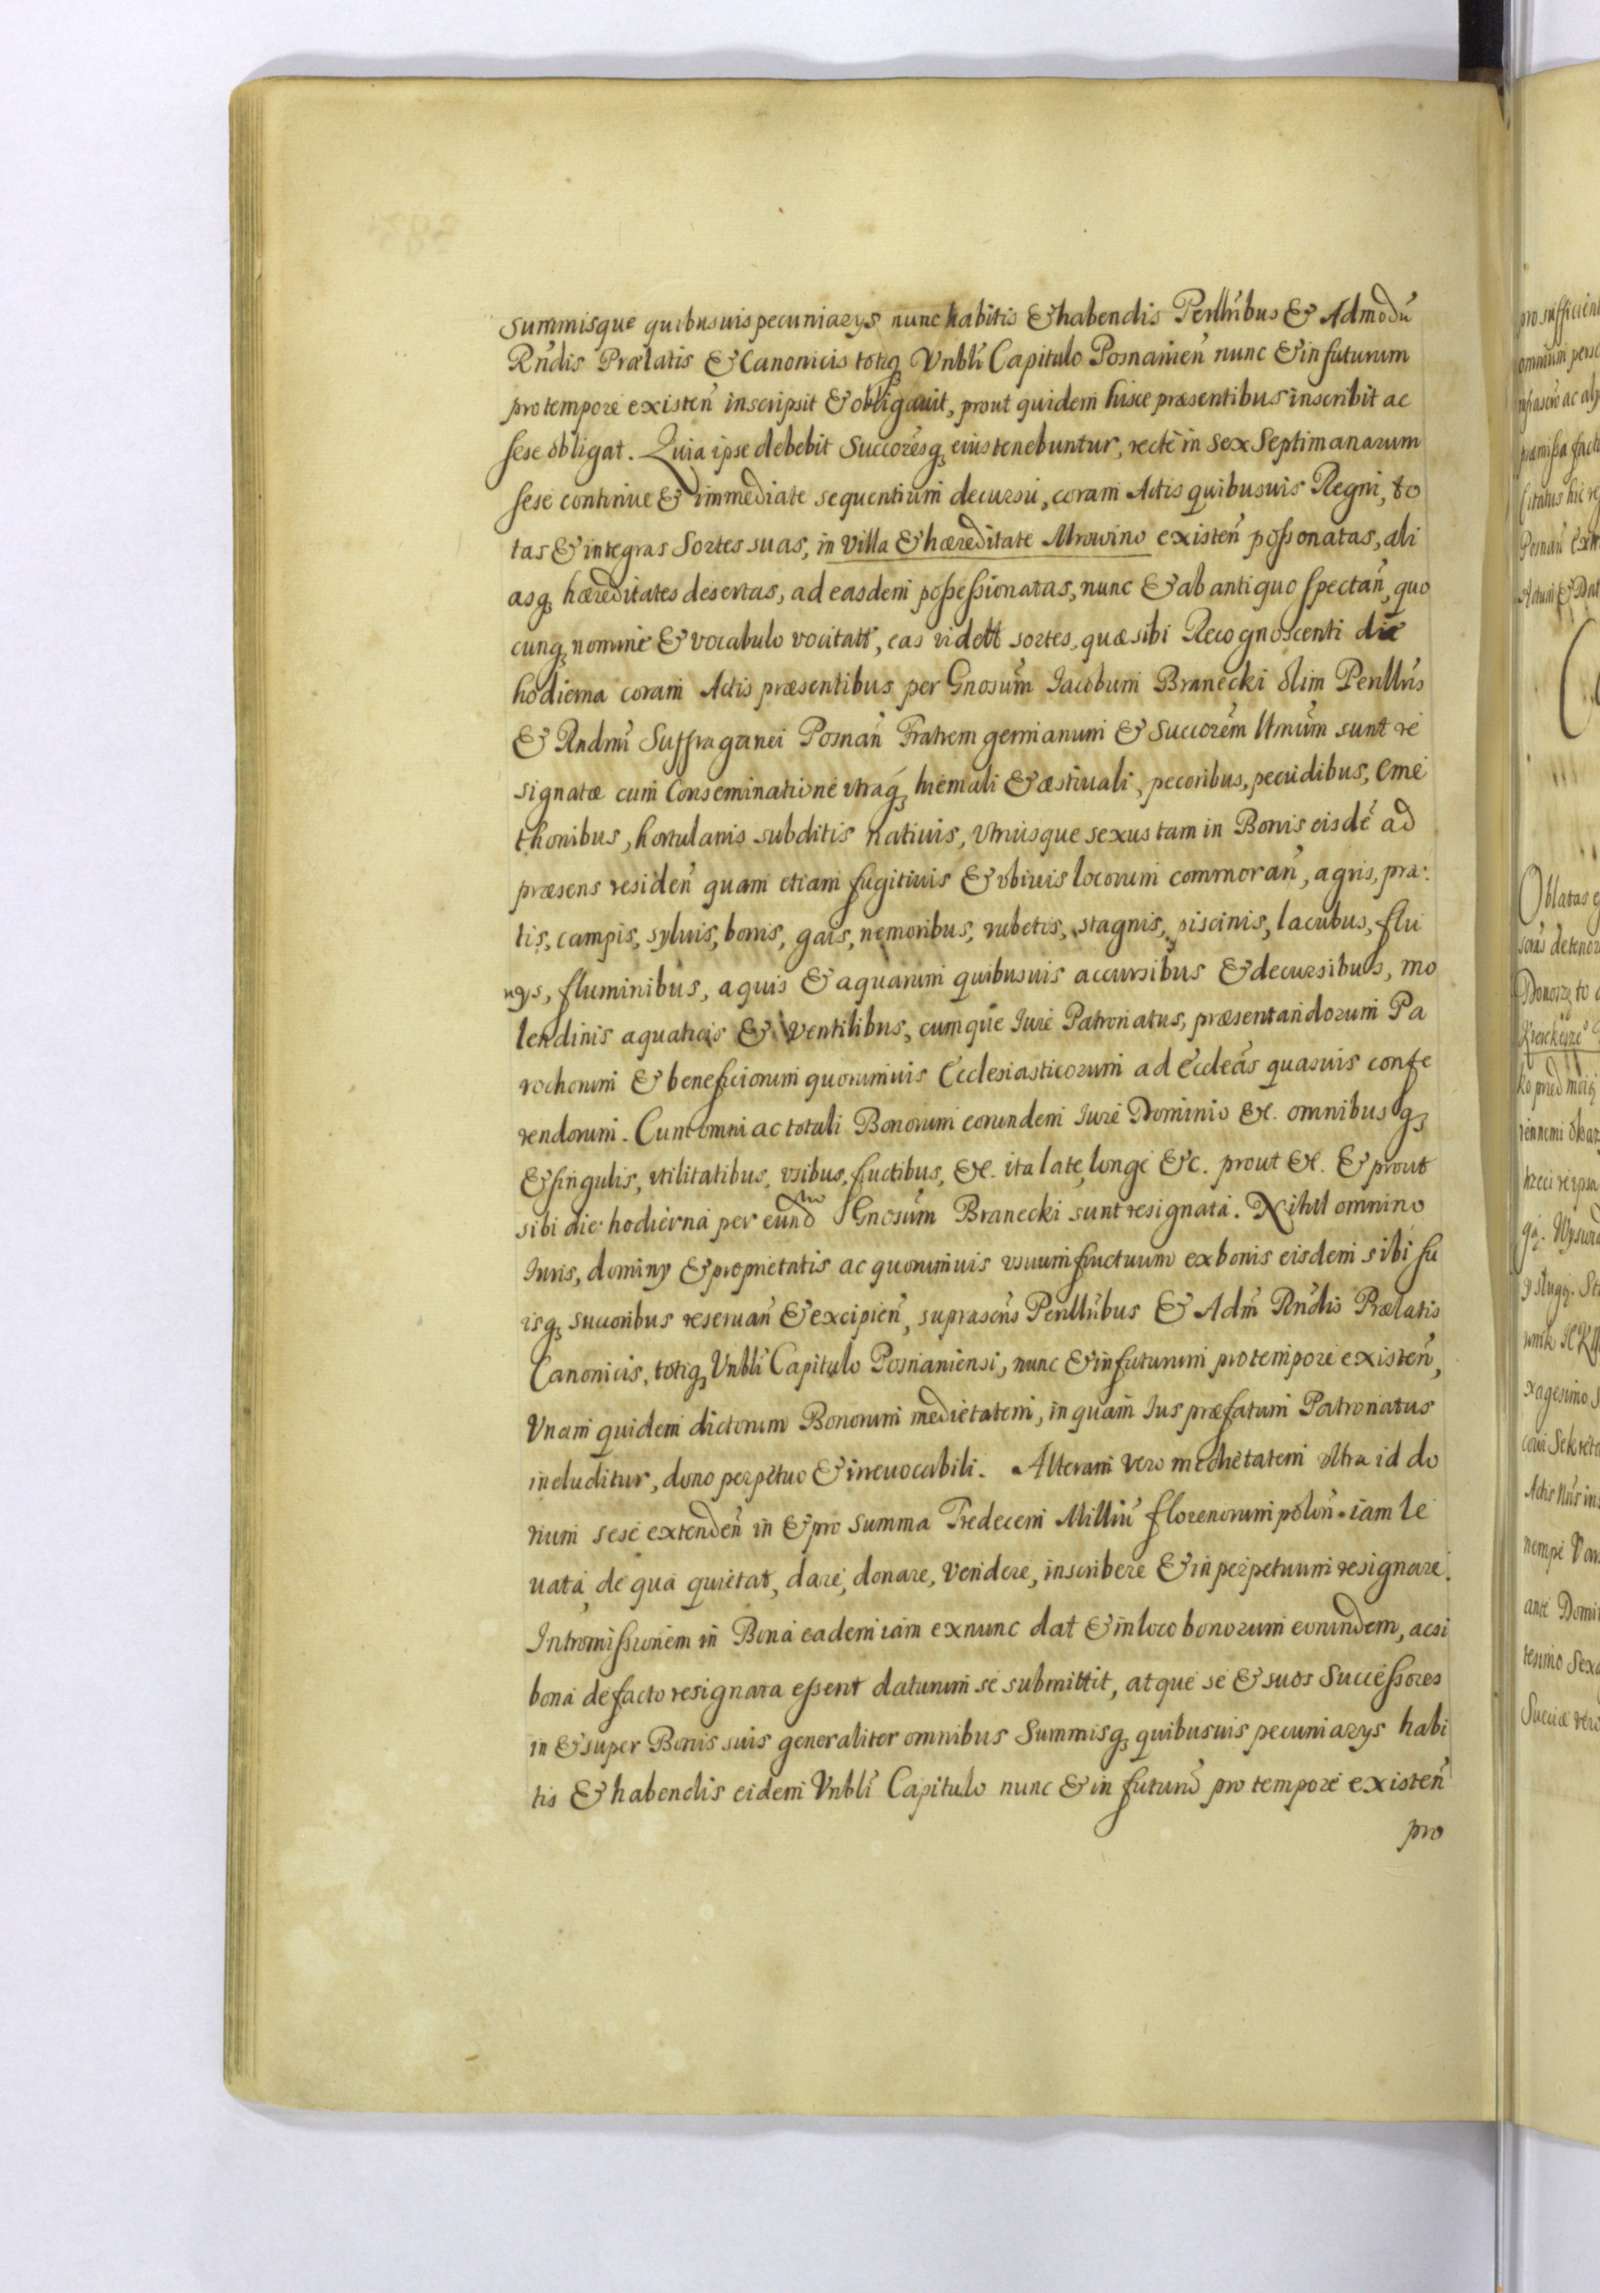 summisque quibusuis pecuniarys nunc habitis & habendis Perllribus & Admodū
Rndis Prælatis & Canonicis totiq3 Vnbli Capitulo Posnanien nunc & in futurum
pro tempore existen inscripsit & obligauit, prout quidem hisce præsentibus inscribit ac
sese obligat. Quia ipse debebit Succoresq3 eius tenebuntur, recte in sex Septimanarum
sese continue & immediate sequentium decursu, coram Actis quibusuis Regni, to
tas & integras Sortes suas, in Villa & hæreditate Mrowino existen possonatas, ali
asq3 hæreditates desertas, ad easdem possessionatas, nunc & ab antiquo spectan, quo
cunq3 nomine & vocabulo vocitatt, eas vidett sortes, quæ sibi Recognoscenti die
hodierna coram Actis præsentibus per Gnosum Iacobum Branecki olim Perillris
& Rndmi Suffraganei Posnan Fratrem germanum & Succorem Vtrium sunt re
signatæ cum Conseminatione vtraq3 hiemali & æstiuali, pecoribus, pecudibus, Cme
thonibus, hortulanis subditis natiuis, vtriusque sexus tam in Bonis eisdē ad
præsens residen quam etiam fugitiuis & vbiuis locorum commoran, agris, pra:
tis, campis, syluis, borris, gais, nemoribus, rubetis, stagnis, piscinis, lacubus, flu
uys, fluminibus, aquis & aquarum quibusuis accursibus & decursibus, mo
lendinis aquaticis & Ventilibus, cumque Iure Patronatus, præsentandorum Pa
rochorum & beneficiorum quorumuis Ecclesiasticorum ad Eccleas quasuis confe
rendorum. Cum omni ac totali Bonorum eorundem Iure Dominio &c. omnibusq3
& singulis, vtilitatibus, vsibus, fuctibus, &c. ita late, longe &c. prout &c. & prout
sibi die hodierna per eund Gnosum Branecki sunt resignata. Nihil omnino
Iuris, dominy & proprietatis ac quorumuis vsuumfructuum ex bonis eisdem sibi su
isq3 succoribus reseruan & excipien, suprascris Perillribus & Adm Rndis Prælatis
Canonicis, totiq3 Vnbli Capitulo Posnaniensi, nunc & in futurum pro tempore existen,
Vnam quidem dictorum Bonorum medietatem, in quam Ius præfatum Patronatus
includitur, dono perpetuo & irreuocabili. Alteram vero medietatem vltra id do
num sese extenden in & pro summa Tredecem Milliū florenorum polon. iam le
uata, de qua quietat, dare, donare, Vendere, inscribere & in perpetuum resignare.
Intromissionem in Bona eadem iam exnunc dat & in loco bonorum eorundem, acsi
bona de facto resignata essent daturum se submittit, atque se & suos Successores
in & super Bonis suis generaliter omnibus Summisq3 quibusuis pecuniarys habi
tis & habendis eidem Vnbli Capitulo nunc & in futurū pro tempore existen
pro